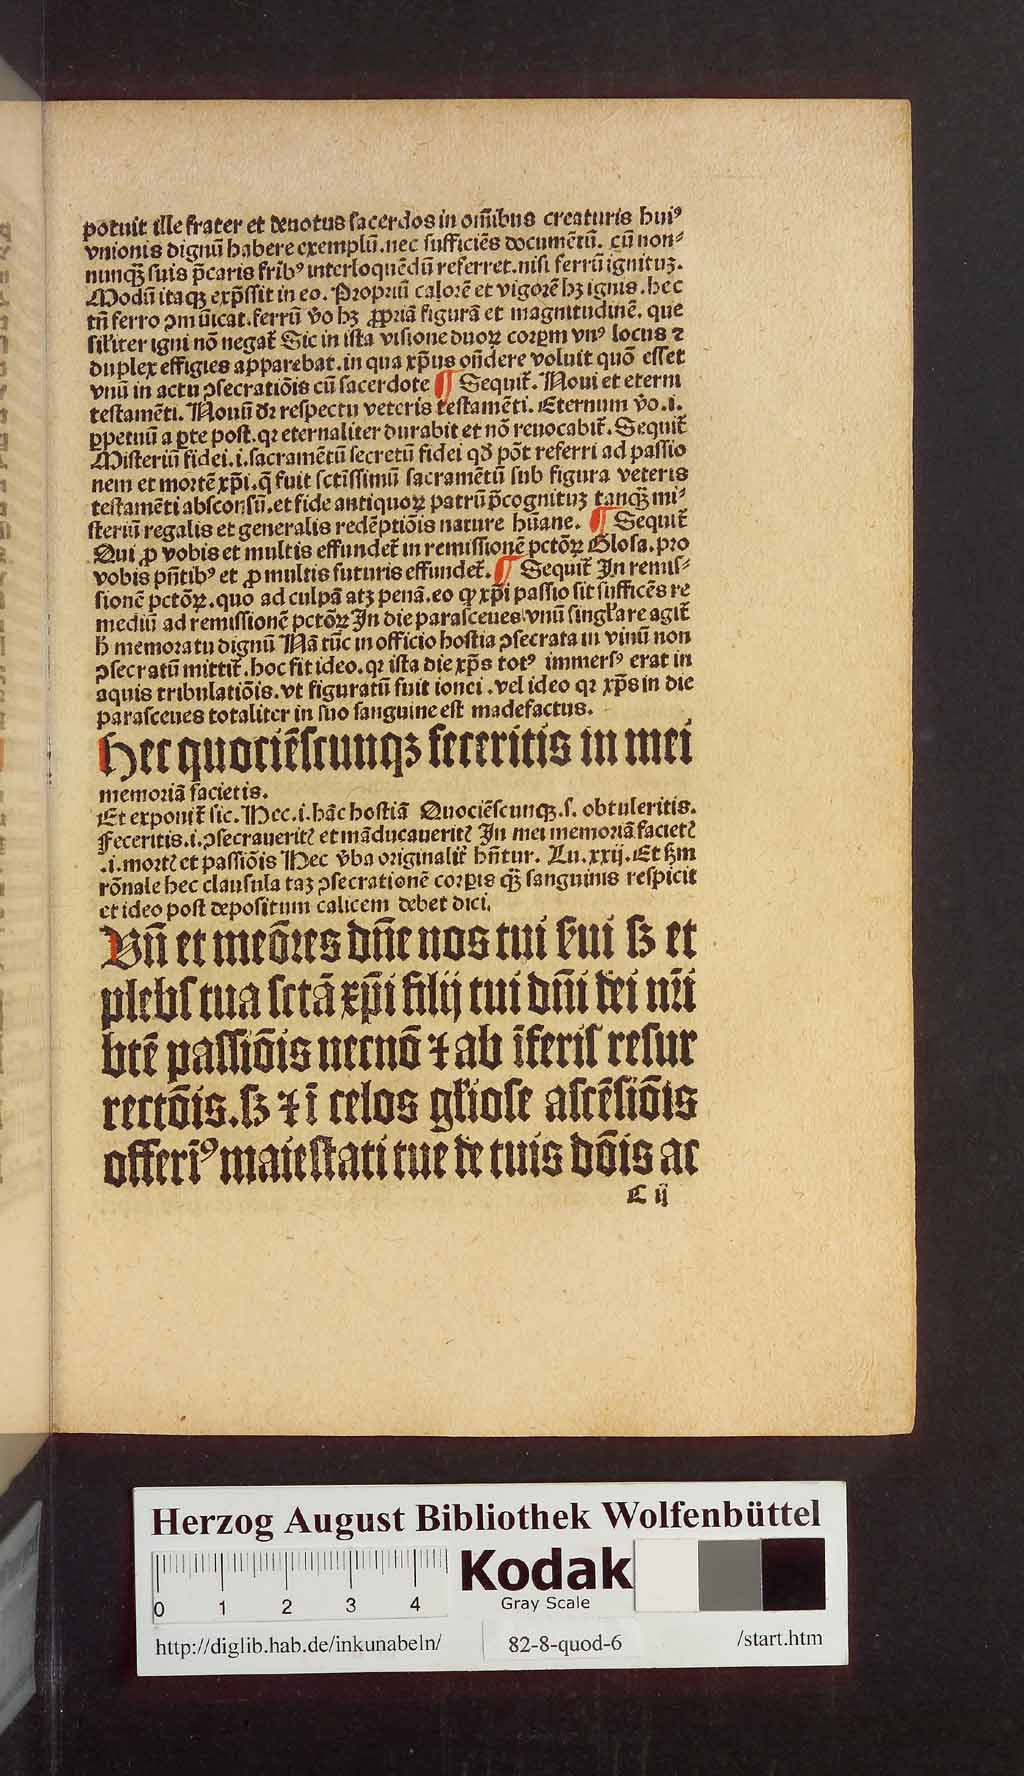 potuit ille frater et deuotus sacerdos in om̄ibus creaturis huiꝰ
vnionis dignū habere exemplū. nec sufficiēs documētū. cū non⸗
nunqꝫ suis p̄caris fribꝰ interloquēdū referret. nisi ferrū ignituꝫ.
Modū itaqꝫ exp̄ssit in eo. Propriū calorē et vigorē hꝫ ignis. hec
tn̄ ferro ꝯm̄uicat. ferrū v̄o hꝫ ꝓpriā figurā et magnitudinē. que
sil'iter igni nō negat᷑ Sic in ista visione duoꝝ corpꝝm vnꝰ locus ⁊
duplex effigies apparebat. in qua xp̄us on̄dere voluit quō esset
vnū in actu ꝯsecratiōis cū sacerdote ¶ Sequit᷑. Noui et eterni
testamēti. Nouū dꝛ respectu veteris testamēti. Eternum v̄o .i.
ꝑpetuū a ꝑte post. qꝛ eternaliter durabit et nō reuocabit᷑. Sequit᷑
Misteriū fidei .i. sacramētū secretū fidei qd̄ pōt referri ad passio
nem et mortē xp̄i. q̄ fuit sctīssimū sacramētū sub figura veteris
testamēti absconsū. et fide antiquoꝝ patrū p̄cognituꝫ tanqꝫ mi⸗
steriū regalis et generalis redēptiōis nature hūane. ¶ Sequit᷑
Qui ꝓ vobis et multis effundet᷑ in remissionē pctōꝝ Glosa. pro
vobis pn̄tibꝰ et ꝓ multis futuris effundet᷑. ¶ Sequit᷑ In remis⸗
sionē pctōꝝ. quo ad culpā atqꝫ penā. eo ꝙ xp̄i passio sit sufficēs re
mediū ad remissionē pctōꝝ In die parasceues vnū singl'are agit᷑
h̄ memoratu dignū Nā tūc in officio hostia ꝯsecrata in vinū non
ꝯsecratū mittit᷑. hoc fit ideo. qꝛ ista die xp̄s totꝰ immersꝰ erat in
aquis tribulatiōis. vt figuratū fuit ionei . vel ideo qꝛ xp̄s in die
parasceues totaliter in suo sanguine est madefactus.
Hec quociēscunqꝫ feceritis in mei
memoriā facietis.
Et exponit᷑ sic. Hec .i. hāc hostiā Quociēscunqꝫ .s. obtuleritis.
Feceritis .i. ꝯsecraueritꝭ et māducaueritꝭ In mei memoriā facietꝭ
.i. mortꝭ et passiōis Hec v̄ba originalit᷑ hn̄tur. Lu. xxij. Et ẜm
rōnale hec clausula taꝫ ꝯsecrationē corpꝑis qꝫ sanguinis respicit
et ideo post depositum calicem debet dici.
Vn̄ et meōres dn̄e nos tui ẜui sꝫ et
plebs tua sctā xp̄i filij tui dn̄i dei nr̄i
btē passiōis necnō ⁊ ab īferis resur
rectōis. sꝫ ⁊ ī celos gl'iose ascēsiōis
offerīꝰ maiestati tue de tuis dōis ac
C ij
Herzog August Bibliothek Wolfenbüttel
0 1 2 3 4
Kodak
Gray Scale
http://diglib.hab.de/inkunabeln/ 82-8-quod-6 /start.htm